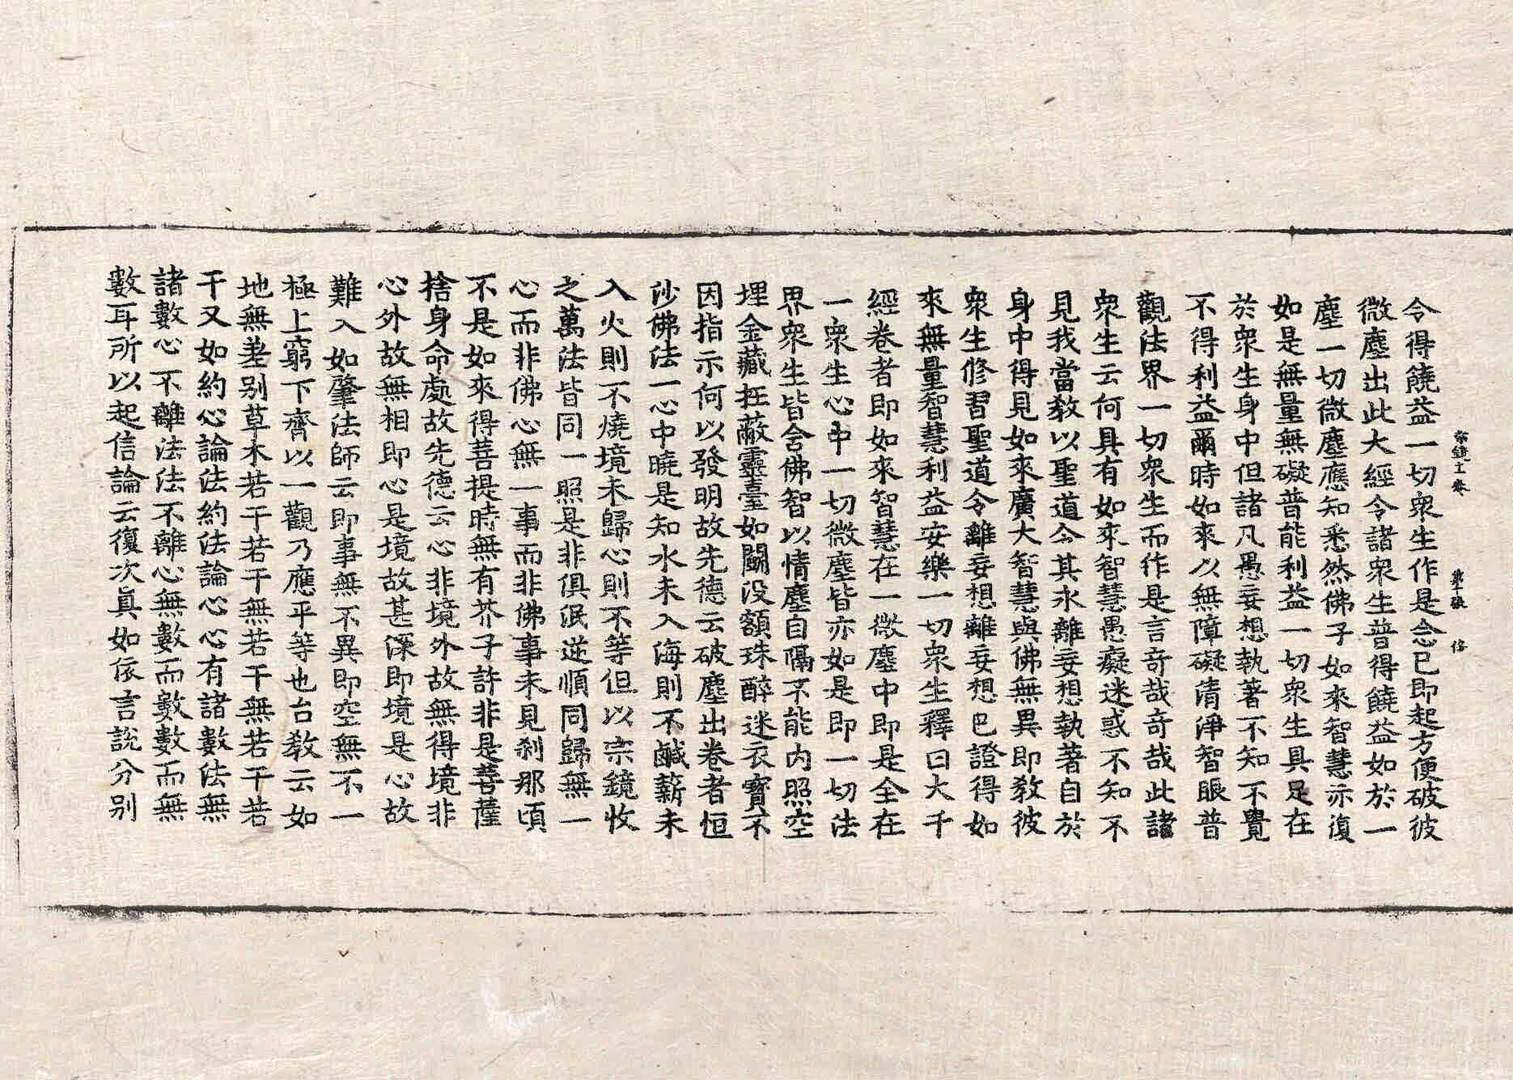 宗鏡十卷　第十張
令得饒益一切衆生作是念已即起方便破彼
微塵出此大經令諸衆生普得饒益如於一
塵一切微塵應知悉然佛子如來智慧亦復
如是無量無礙普能利益一切衆生具足在
於衆生身中但諸凡愚妄想執著不知不覺
不得利益爾時如來以無障礙清淨智眼普
觀法界一切衆生而作是言奇哉奇哉此諸
衆生云何具有如來智慧愚癡迷惑不知不
見我當教以聖道令其永離妄想執著自於
身中得見如來廣大智慧與佛無異即教彼
衆生修習聖道令離妄想離妄想已證得如
來無量智慧利益安樂一切衆生釋曰大千
經卷者即如來智慧在一微塵中即是全在
一衆生心中一切微塵皆亦如是即一切法
界衆生皆含佛智以情塵自隔不能内照空
埋金藏枉蔽靈臺如鬭没額珠醉迷衣寶不
因指示何以發明故先德云破塵出卷者恒
沙佛法一心中曉是知水未入海則不鹹薪未
入火則不燒境未歸心則不等但以宗鏡收
之萬法皆同一照是非俱泯逆順同歸無一
心而非佛心無一事而非佛事未見刹那頃
不是如來得菩提時無有芥子許非是菩薩
捨身命處故先德云心非境外故無得境非
心外故無相即心是境故甚深即境是心故
難入如肇法師云即事無不異即空無不一
極上窮下齊以一觀乃應平等也台教云如
地無差别草木若干若干無若干無若干若
干又如約心論法約法論心心有諸數法無
諸數心不離法法不離心無數而數數而無
數耳所以起信論云復次真如依言說分别